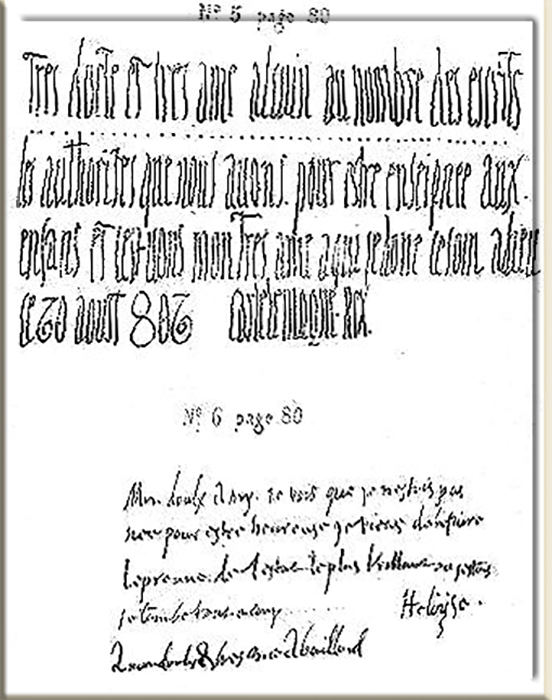 Nº 5 page 80
Tres docte et tres ame alcuin au nombre des escrits
les authorites que nous avons. pour estre enseignee aux
enfans et les-vous mon tres ame a qui je done le soin adieu
ce 20 aoust 806 Carlemagne. Rex.
Nº 6 page 80
Mon doulx amy. je vois que je nestois pas
nee pour estre heureuse je viens de faire
lepreuve de lestat le plus brillant ou jestois
je tombe tout a coup
Heloyse.
A mon doulx & tres ame Abaillard